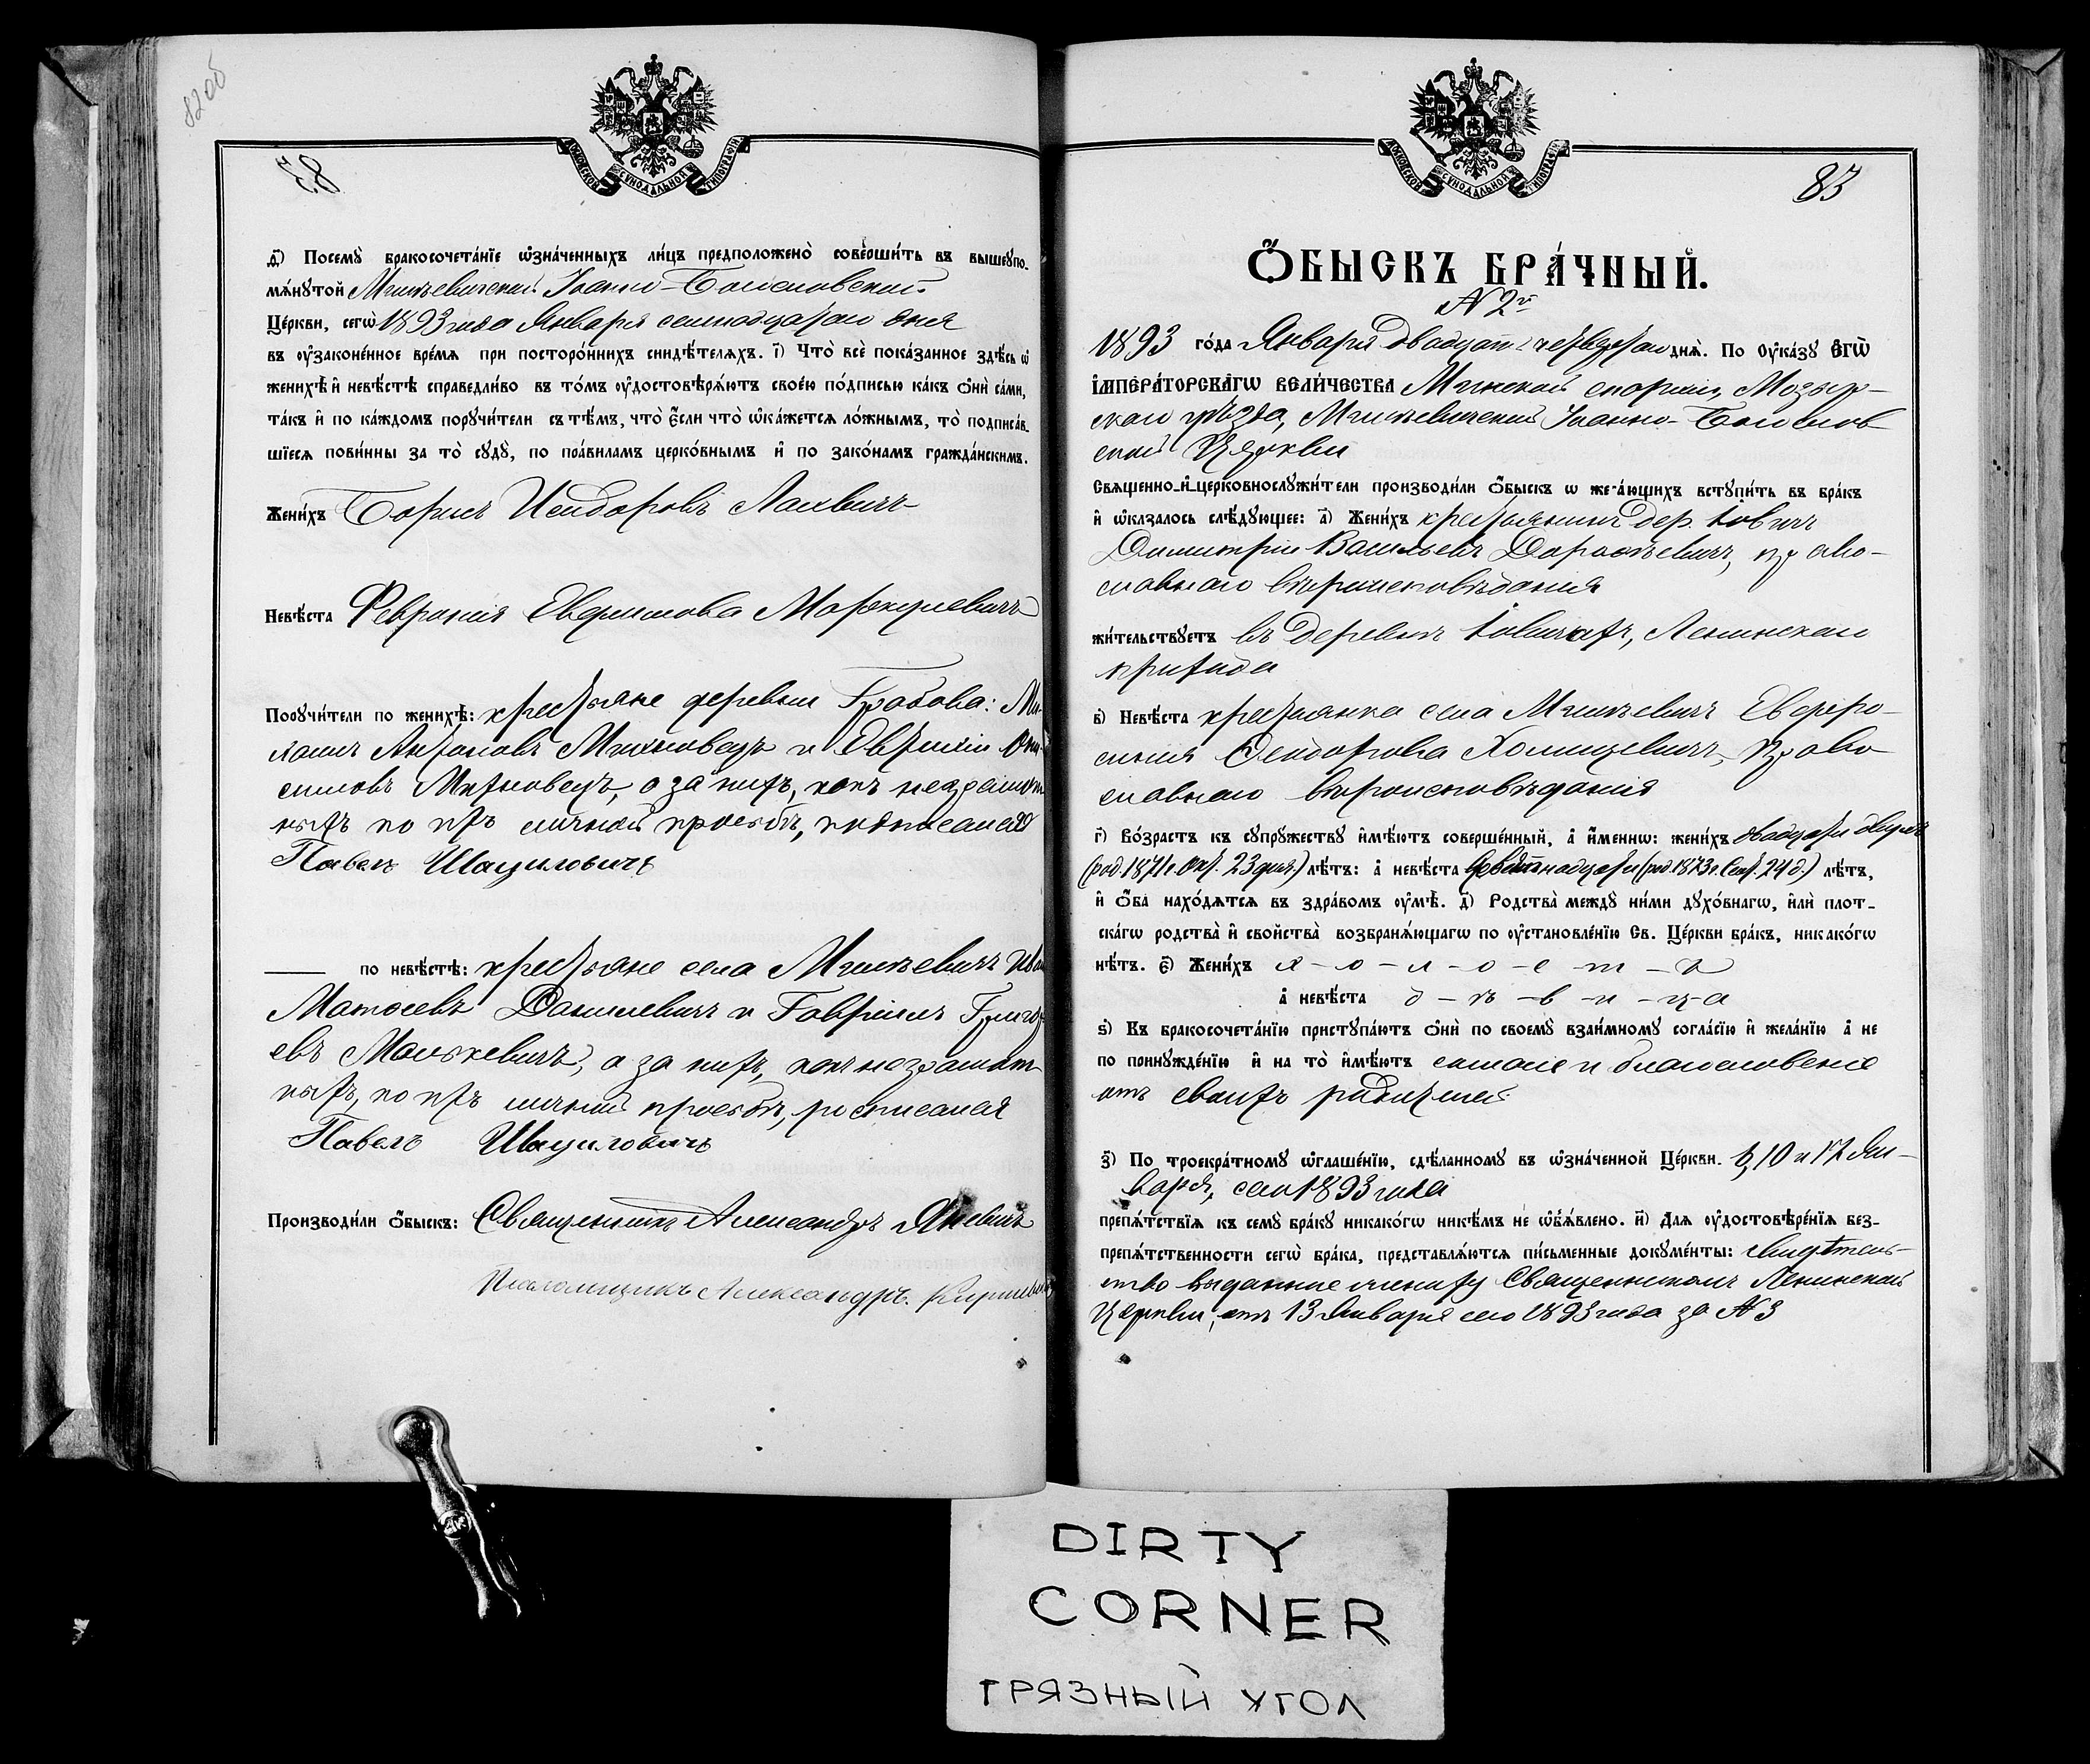 82об
83
МОСКОВСКОЙ СѴНОДАЛЬНОЙ ТИПОГРАФІИ
д҃) Посемꙋ̀ бракосочета́нїе ѡ҆зна́ченныхъ ли́цъ предположено̀ соверши́ть въ вышеꙋпо-
мѧ́нꙋтой Мижевичской Іоанно-Богословской
Це́ркви, сегѡ̀ 1893 года Января семнадцатаго дня
въ ᲂу҆зако́ненное вре́мѧ при посторо́ннихъ свидѣ́телѧхъ. і҃) Что̀ всѐ пока́занное здѣ́сь ѡ҆
женихѣ̀ и҆ невѣ́стѣ справедли́во въ то́мъ ᲂу҆достовѣрѧ́ютъ свое́ю по́дписью ка́къ ѻ҆нѝ са́ми,
та́къ и҆ по ка́ждомъ порꙋчи́тели съ тѣ́мъ, что̀ є҆́сли что̀ ѡ҆ка́жетсѧ ло́жнымъ, то̀ подписа́в-
шїесѧ пови́нны за то̀ сꙋдꙋ̀, по пра́виламъ церко́внымъ и҆ по зако́намъ гражда́нскимъ.
Жени́хъ Борисъ Исидоровъ Лахвичъ
Невѣ́ста Феврония Евфимова Марцулевичъ
Порꙋчи́тели по женихѣ̀: крестьяне деревни Грабова: Ми-
хаилъ Антоновъ Михновецъ и Евтихій Они-
симовъ Михновецъ, а за нихъ, какъ неграмот
ныхъ по ихъ личной просьбѣ, подписался
Павелъ Шациловичъ
по невѣ́стѣ: крестьяне села Мижевичъ Иван
Матѳеевъ Данилевичъ и Гавріилъ Григор
евъ Манькевичъ, а за нихъ, какъ неграмот
ныхъ, по ихъ личной просьбѣ, росписался
Павелъ Шациловичъ
Производи́ли ѻ҆́быскъ: Священникъ Александръ Яневичъ
Псаломщикъ Александръ
83
МОСКОВСКОЙ СѴНОДАЛЬНОЙ ТИПОГРАФІИ
Ѻ҆́БЫСКЪ БРА́ЧНЫЙ.
№ 2й
1893 го́да Января двадцать четвертаго днѧ̀. По Оу҆ка́зꙋ Є҆ГѠ̀
І҆МПЕРА́ТОРСКАГѠ ВЕЛИ́ЧЕСТВА Минской епархіи, Мозыр-
скаго уѣзда, Мижевичской Іоанно-Богослов
ской Церкви
Свѧщенно-и҆-церковнослꙋжи́тели производи́ли ѻ҆́быскъ ѡ жела́ющихъ встꙋпи́ть въ бра́къ
и҆ ѡ҆казалось слѣ́дꙋющее: а҃) Жени́хъ крестьянинъ дер.
Димитрій Васильевъ право-
славнаго вѣроисповѣданія
жи́тельствꙋетъ въ деревнѣ Ленинскаго
прихода
в҃) Невѣ́ста крестьянка села Мижевичъ Евфро-
синия Исидорова Хомицевичъ, право
славнаго вѣроисповѣданія
г҃) Во́зрастъ къ сꙋпрꙋжествꙋ и҆мѣ́ютъ соверше́нный, а҆ и҆́меннѡ: жени́хъ двадцати двухъ
(род. 1871 г. Окт. 23 дня) лѣ́тъ: а҆ невѣ́ста девятнадцати (род. 1873 г. Сент. 24 д.) лѣ́тъ,
и҆ ѻ҆́ба нахо́дѧтсѧ въ здра́вомъ ᲂу҆мѣ̀. д҃) Родства̀ междꙋ̀ ни́ми дꙋхо́внагѡ, и҆лѝ плот-
ска́гѡ родства̀ и҆ свойства̀ возбранѧ́ющагѡ по ᲂу҆становле́нїю Св. Це́ркви бра́къ, никако́гѡ
нѣ́тъ. є҃) Жени́хъ х-о-л-о-с-т-ъ
а҆ невѣ́ста д-ѣ-в-и-ц-а
ѕ҃) Къ бракосочета́нїю пристꙋпа́ютъ ѻ҆нѝ по своемꙋ̀ взаи́мномꙋ согла́сїю и҆ жела́нїю а҆ не
по принꙋжде́нїю и҆ на то̀ и҆мѣ́ютъ согласіе и благословеніе
отъ своихъ родителей
з҃) По троекра́тномꙋ ѡ҆глаше́нїю, сдѣ́ланномꙋ въ ѡ҆зна́ченной Це́ркви. 6, 10 и 17 Ян-
варя, сего 1893 года
препѧ́тствїѧ къ семꙋ̀ бра́кꙋ никако́гѡ никѣ́мъ не ѡ҆б̾ѧ́влено. и҃) Длѧ ᲂу҆достовѣре́нїѧ без-
препѧ́тственности сегѡ̀ бра́ка, представлѧ́ютсѧ пи́сьменные докꙋме́нты: свидѣтель-
ство выданное жениху Священникомъ Ленинской
Церкви, отъ 13 Января сего 1893 года за № 3
DIRTY
CORNER
ГРЯЗНЫЙ УГОЛ